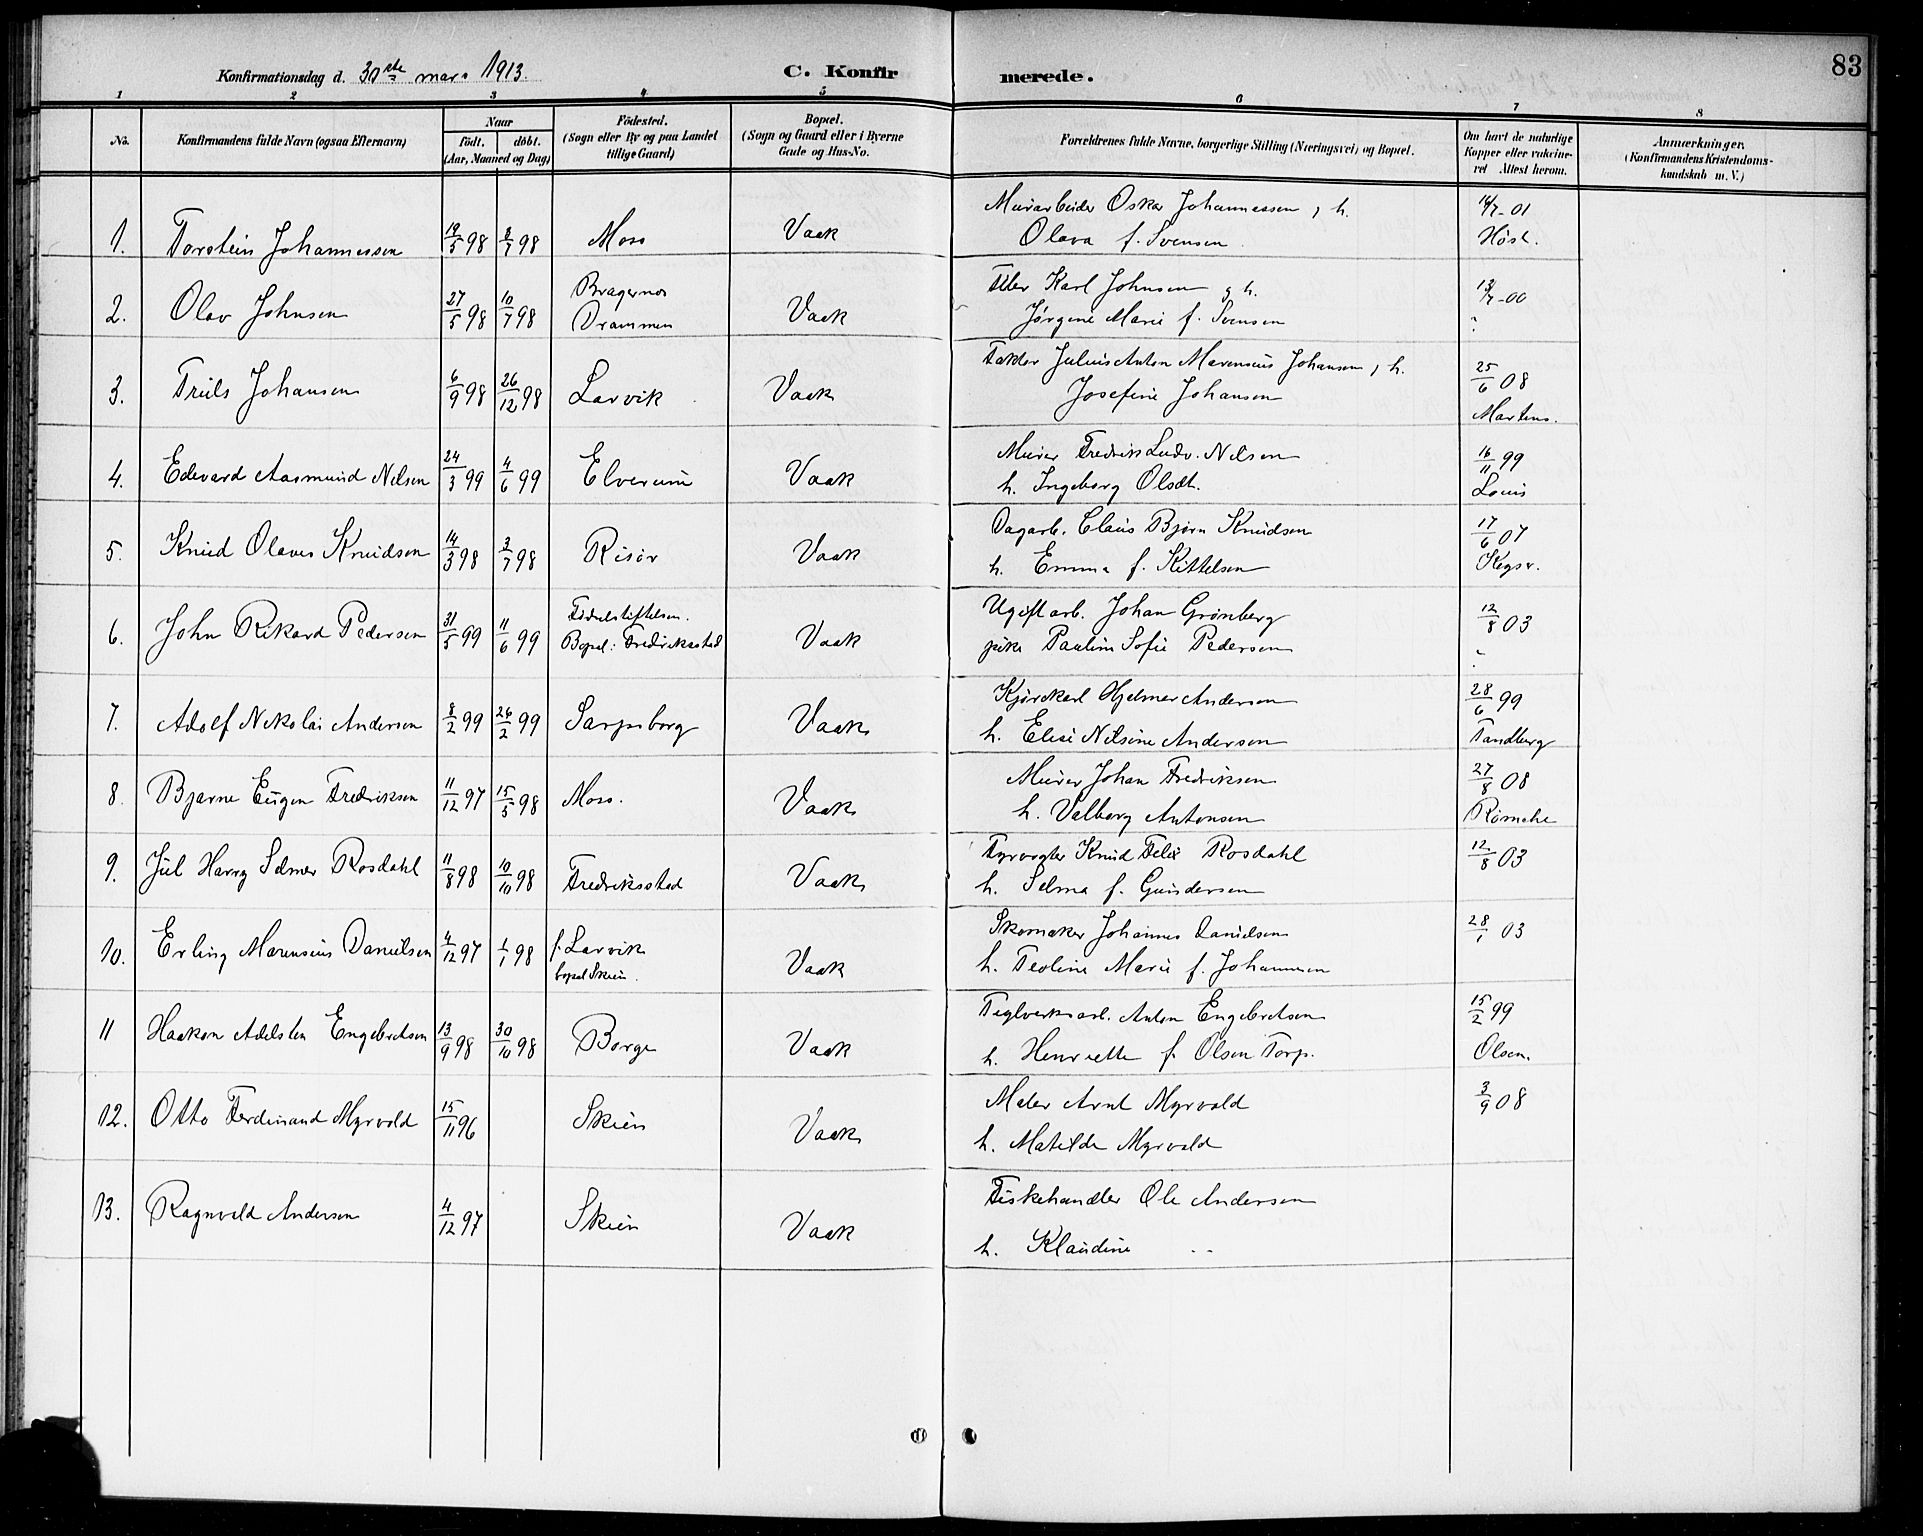 83
Konfirmationsdag d. 30te mars 1913.
C. Konfirmerede.
1 2 3 4 5 6 7 8
No.
Konfirmandens fulde Navn (ogsaa Efternavn)
Naar
födt. döbt.
(Aar, Maaned og Dag)
Födested.
(Sogn eller By og paa Landet
tillige Gaard)
Bopæl.
(Sogn og Gaard eller i Byerne
Gade og Hus-No.
Forældrenes fulde Navne, borgerlige Stilling (Næringsvei) og Bopæl.
Om havt de naturlige
Kopper eller vakcine-
ret Attest herom.
Anmærkninger.
(Konfirmandens Kristendoms-
kundskab m. V.)
1. Torstein Johannessen 19/5 98 8/7 98 Moss Vaak
Murarbeider Oskar Johannessen , h.
Olava f. Svensen
14/7-01
Høst.
2. Olav Johnsen 27/5 98 10/7 98 Bragernes
Drammen Vaak
Filer Karl Johnsen g h.
Jørgine Marie f. Svensen
13/7-00
?
3. Truls Johansen 6/9 98 26/12 98 Larvik Vaak
Faktor Julius Anton Marensius Johansen , h.
Josefine Johansen
25/6 08
Martens.
4. Edevard Aasmund Nilsen 24/3 99 4/6 99 Elverum Vaak
Murer Fredrik Ludv. Nilsen
h. Ingeborg Olsdt.
16/11 99
Louis
5. Knud Olaves Knudsen 14/3 98 3/7 98 Risör Vaak
Dagarb. Claus Bjørn Knudsen
h. Emma f. Kittelsen
17/6 07
6. John Rikard Pedersen 31/5 99 11/6 99 Födselsstiftelsen.
Bopæl: Fredriksstad Vaak
Ugift arb. Johan Grønberg
pike Pauline Sofie Pedersen
12/8 03
?
7. Adolf Nikolai Andersen 8/2 99 26/2 99 Sarpsborg Vaak
Kjørekarl Hjelmer Andersen
h. Elise Nilsine Andersen
28/6 99
Tandberg
8. Bjarne Eugen Fredriksen 11/12 97 15/5 98 Moss. Vaak
Murer Johan Fredriksen
h. Valborg Antonsen
27/8 08
Rømcke
9. Jul Harry Selmer Rosdahl 11/8 98 10/10 98 Fredriksstad Vaak
Fyrvogter Knud Felix Rosdahl
h. Selma f. Gundersen
12/8 03
10. Erling Marensius Danielsen 4/12 97 1/1 98 f. Larvik
bopæl Skien. Vaak
Skomaker Johannes Danielsen
h. Teoline Marie f. Johannesen
28/1 03
11 Haakon Adelsten Engebretsen 13/9 98 30/10 98 Borge Vaak
Teglverksarb. Anton Engebretsen
h. Henriette f. Olsen Torp.
15/2 99
Olsen.
12. Otto Ferdinand Myrvold 15/11 96 Skien Vaak
Maler Arnt Myrvold
h. Matilde Myrvold
3/9 08
13. Ragnvald Andersen 4/12 97 Skien Vaak
Fiskehandler Ole Andersen
h. Klaudine - -